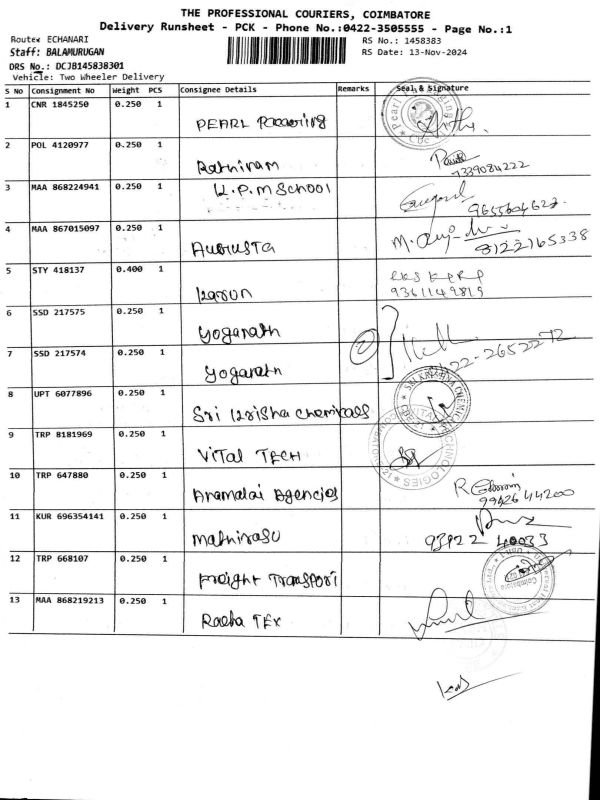 THE PROFESSIONAL COURIERS, COIMBATORE
Delivery Runsheet - PCK - Phone No.:0422-3505555 - Page No.:1
Route: ECHANARI
RS No.: 1458383
Staff: BALAMURUGAN
RS Date: 13-Nov-2024
DRS No.: DCJB145838301
Vehicle: Two Wheeler Delivery
S No Consignment No Weight PCS Consignee Details Remarks Seal & Signature
1 CNR 1845250 0.250 1 PEARL
2 POL 4120977 0.250 1 Rathinam
7339084222
3 MAA 868224941 0.250 1 U.P.M School
4 MAA 867015097 0.250 1 Augusta 8122165338
5 STY 418137 0.400 1 Karun
9361149815
6 SSD 217575 0.250 1 Yoganath
7 SSD 217574 0.250 1 Yoganath 2
8 UPT 6077896 0.250 1 Sri Krisha Chemicals
9 TRP 8181969 0.250 1 VITAL TECH
10 TRP 647880 0.250 1 Annamalai Agencies
9942644200
11 KUR 696354141 0.250 1 Mathirasu
93422 40033
12 TRP 668107 0.250 1 Freight Transport
13 MAA 868219213 0.250 1 Radha TEX